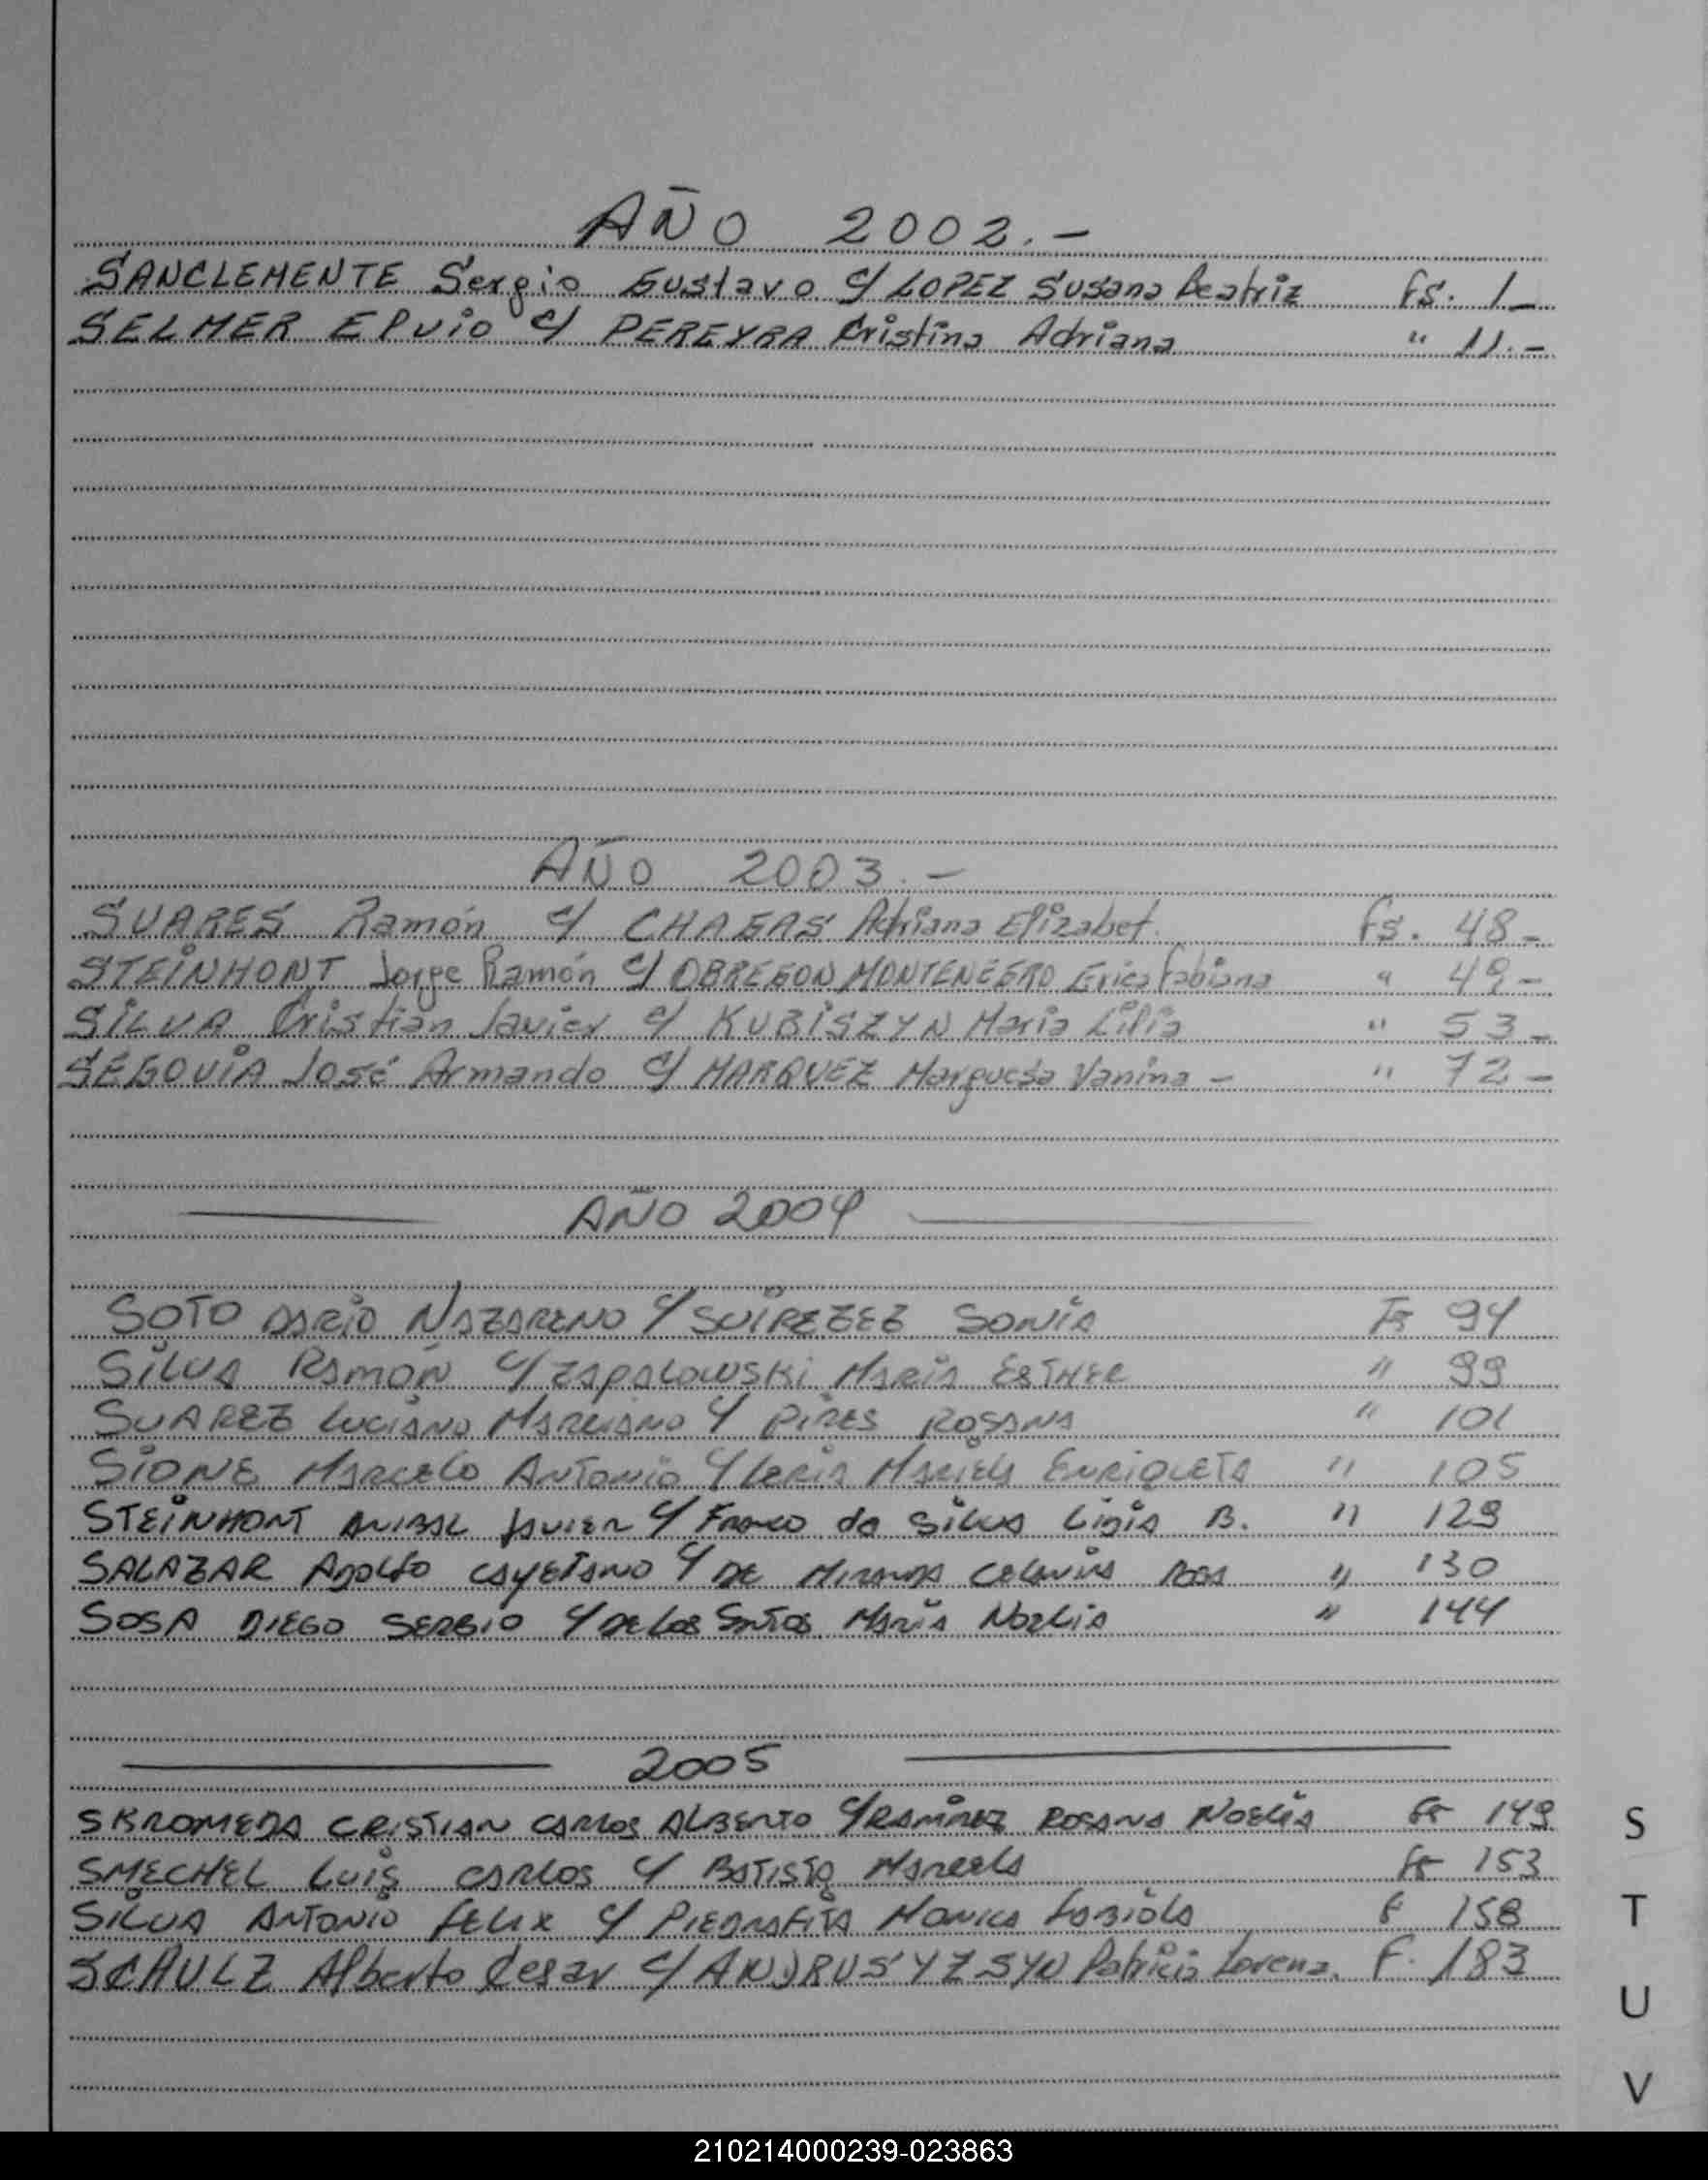 AÑO 2002.-
SANCLEMENTE Sergio Gustavo c/ LOPEZ Susana Beatriz Fs. 1_
SELMER Elvio c/ PEREYRA Cristina Adriana " 11.-
AÑO 2003.-
SUARES Ramón c/ CHAGAS Adriana Elizabet. Fs. 48-
STEINHONT Jorge Ramón c/ OBREGON MONTENEGRO Erica Fabiana " 49-
SILVA Cristian Javier c/ KUBISZYN Maria Lilia " 53-
SEGOVIA José Armando c/ MARQUEZ Vanina - " 72-
AÑO 2004
SOTO DARIO NAZARENO c/ SONIA Fs 94
SILVA RAMÓN c/ ZAPALOWSKI MARIA ESTHER " 99
SUAREZ LUCIANO MARCIANO c/ PIRES ROSANA " 101
SIONE MARCELO ANTONIO c/ LERIA MARIELA ENRIQUETA " 105
STEINHONT ANIBAL JAVIER c/ FRANCO da SILVA LIGIA B. " 129
SALAZAR ADOLFO CAYETANO c/ DE MIRANDA ROSA " 130
SOSA DIEGO SERGIO c/ DE LOS SANTOS MARIA NOELIA " 144
2005
SKROMEDA CRISTIAN CARLOS ALBERTO c/ RAMIREZ ROSANA NOELIA Fs 149
SMECHEL LUIS CARLOS c/ BATISTA MARCELA Fs 153
SILVA ANTONIO FELIX c/ PIEDRAFITA MONICA FABIOLA F 158
SCHULZ Alberto Cesar c/ ANDRUSYZSYN Patricia Lorena. F. 183
S
T
U
V
210214000239-023863